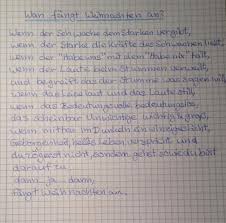 Wann fängt Weihnachten an?
Wenn der Schwache dem Starken vergibt,
wenn der Starke die Kräfte des Schwachen liebt,
wenn der "Habewas" mit dem "Habenix" teilt,
wenn der Laute beim Stummen verweilt,
und begreift was der Stumme ihm sagen will,
wenn das Leise laut und das Laute still,
wenn das Bedeutungsvolle bedeutungslos,
das scheinbar Unwichtige wichtig & groß,
wenn mitten im Dunkeln ein winziges Licht,
Geborgenheit, helles Leben verspricht und
du zögerst nicht, sondern gehst so wie du bist
darauf zu
dann ja dann,
fängt Weihnachten an.